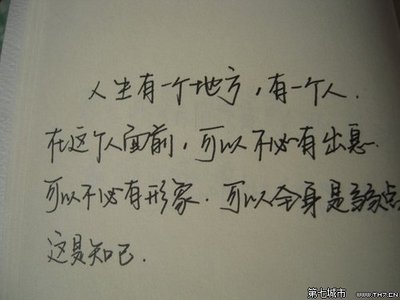 人生有一个地方，有一个人.
在这个人面前，可以不必有出息.
可以不必有形象.可以全身是缺点
这是知己.
第七城市
WWW.TH7.CN